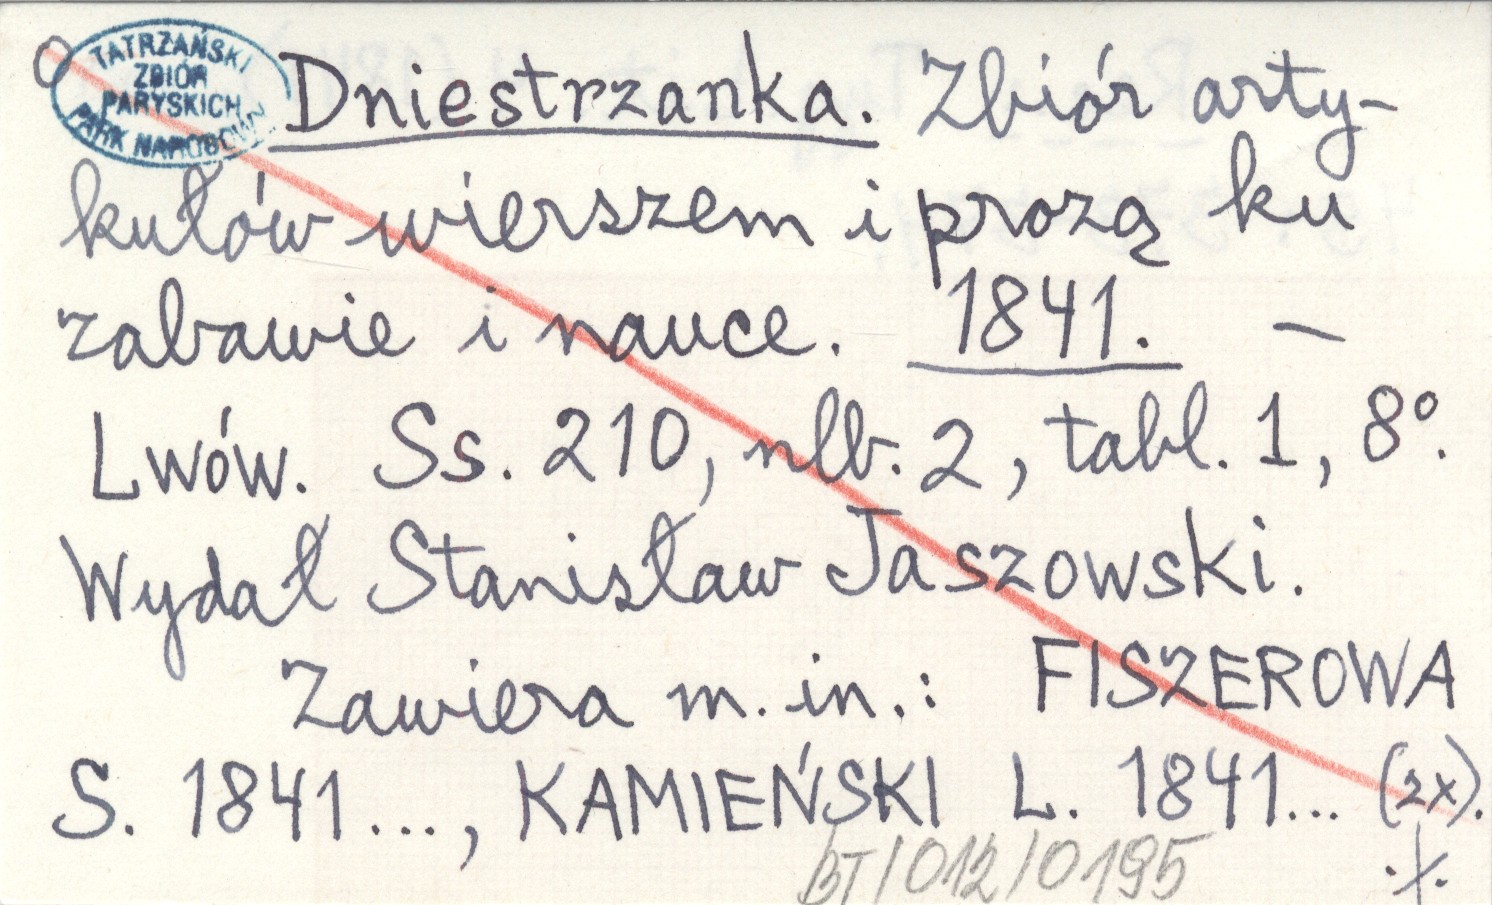 TATRZAŃSKI
ZBIÓR
PARYSKICH
PARK NARODOWY
Dniestrzanka. Zbiór arty-
kułów wierszem i prozą ku
zabawie i nauce. 1841. —
Lwów. Ss. 210, nlb. 2, tabl. 1, 8°.
Wydał Stanisław Jaszowski.
Zawiera m. in.: FISZEROWA
S. 1841..., KAMIEŃSKI L. 1841... (2x).
./.
BT/012/0195